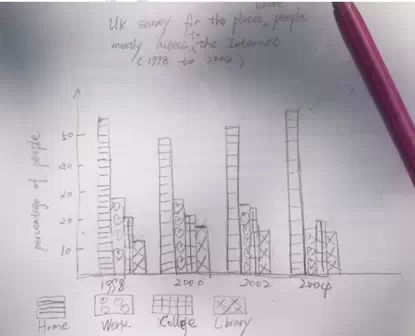 where
UK survey for the places, people
mostly access to the Internet
(1998 to 2004)
percentage of people
50
40
30
20
10
1998 2000 2002 2004
Home Work College Library